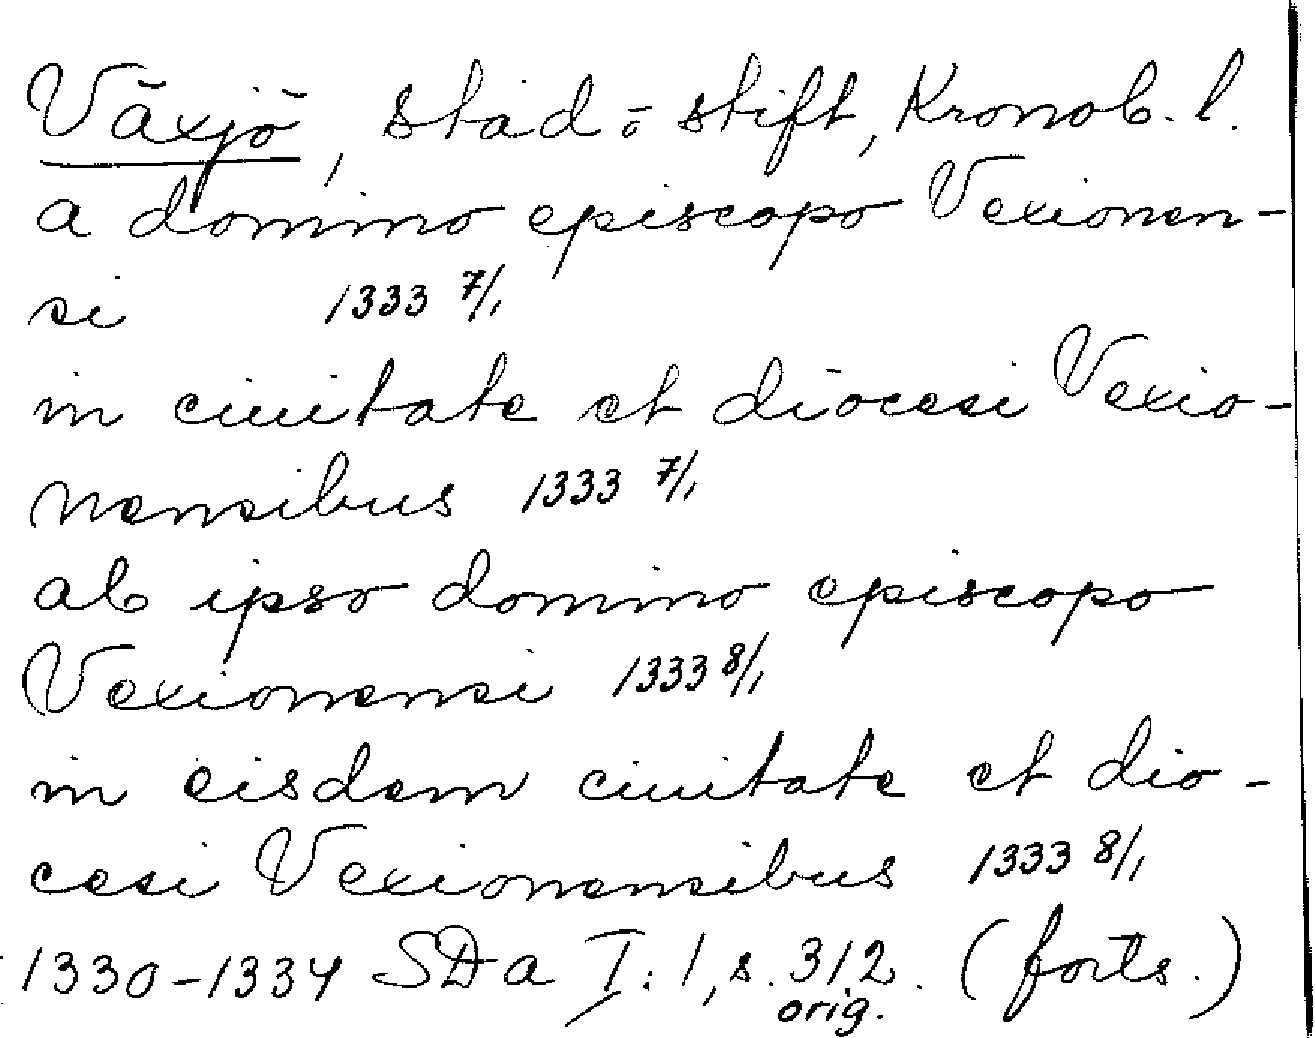 Växjö, stad o. stift, Kronob. l.
a domino episcopo Vexionen-
si 1333 7/1
in ciuitate et diocesi Vexio-
nensibus 1333 7/1
ab ipso domino episcopo
Vexionensi 1333 8/1
in eisdem ciuitate et dio-
cesi Vexionensibus 1333 8/1
1330-1334 SDa I:1, s. 312. (forts.)
orig.